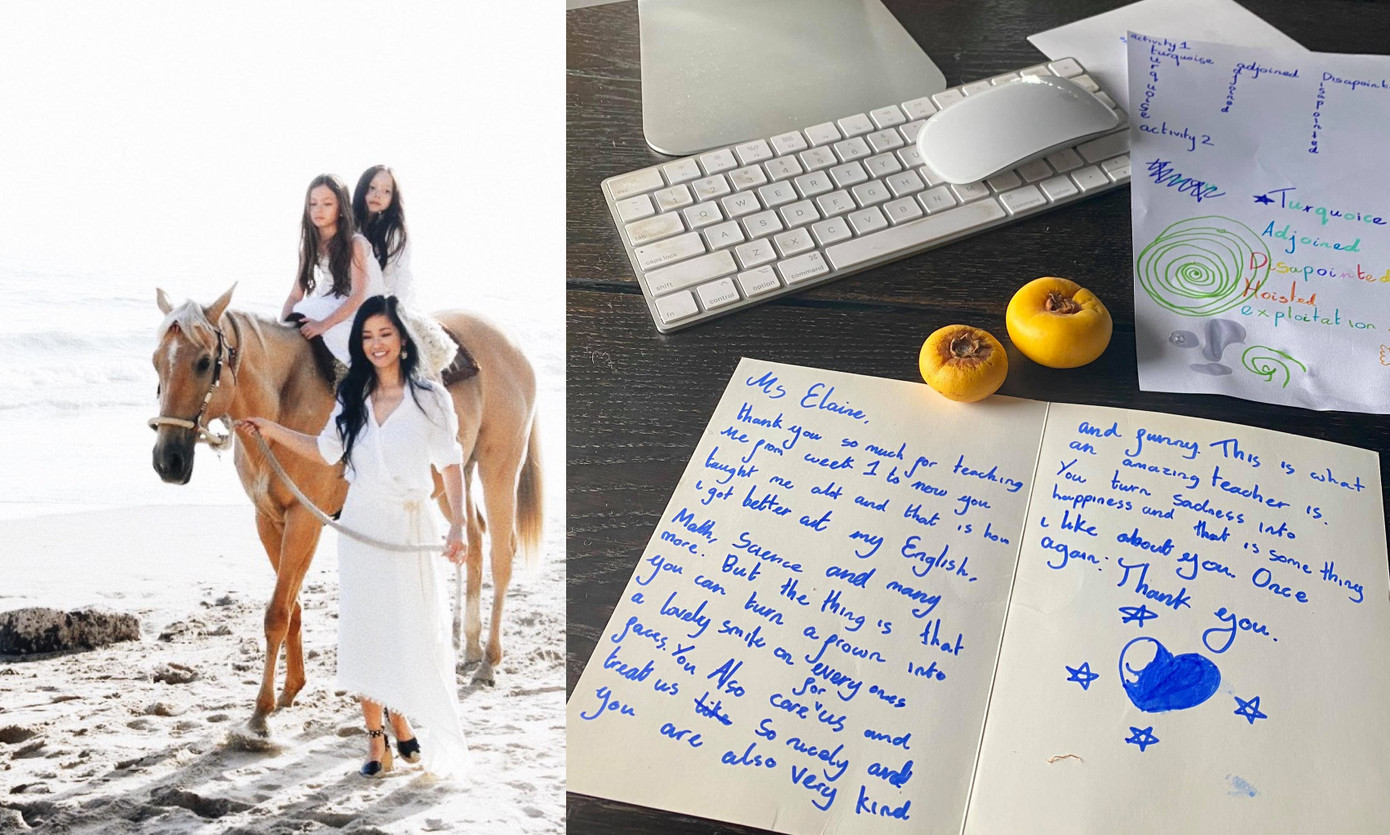 activity 1
turquoise adjoined Disapoint
urquoise
isapointed
activity 2
Turquoice
Adjoined
Disapointed
Hoisted
exploitation
Q W E R T Y
tab
A S D F G H
caps lock
Z X C V B N
shift
fn control option command
Ms Elaine,
thank you so much for teaching
Me from week 1 to now you
taught me alot and that is how
i got better at my English,
Math, Science and many
more. But the thing is that
you can turn a frown into
a lovely smile on every ones
faces. You Also care for us and
treat us so nicely and
you are also very kind
and funny. This is what
an amazing teacher is.
You turn sadness into
happiness and that is some thing
i like about you. Once
again: Thank you.